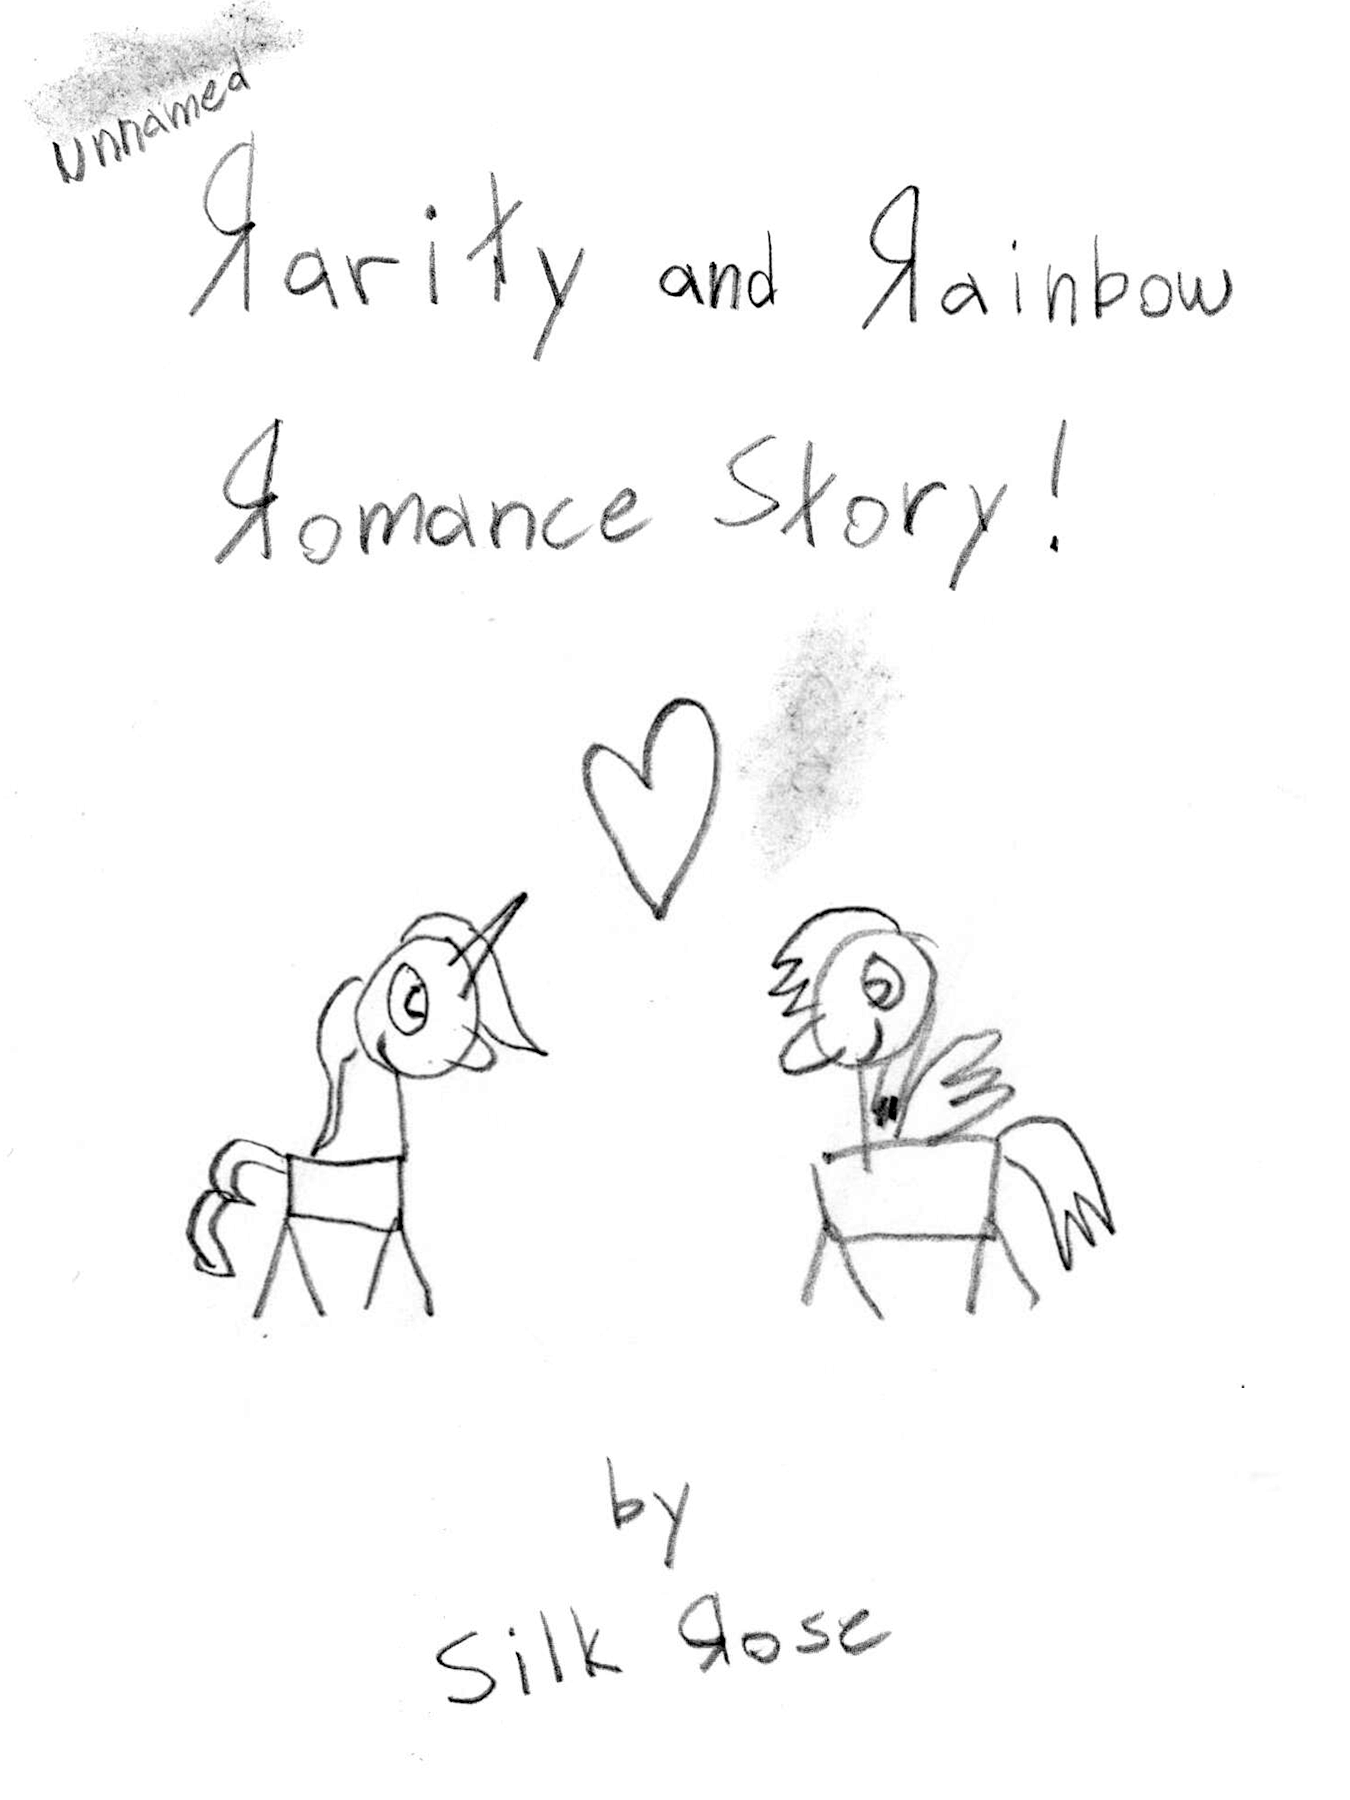 unnamed
Rarity and Rainbow
Romance Story!
by
Silk Rose